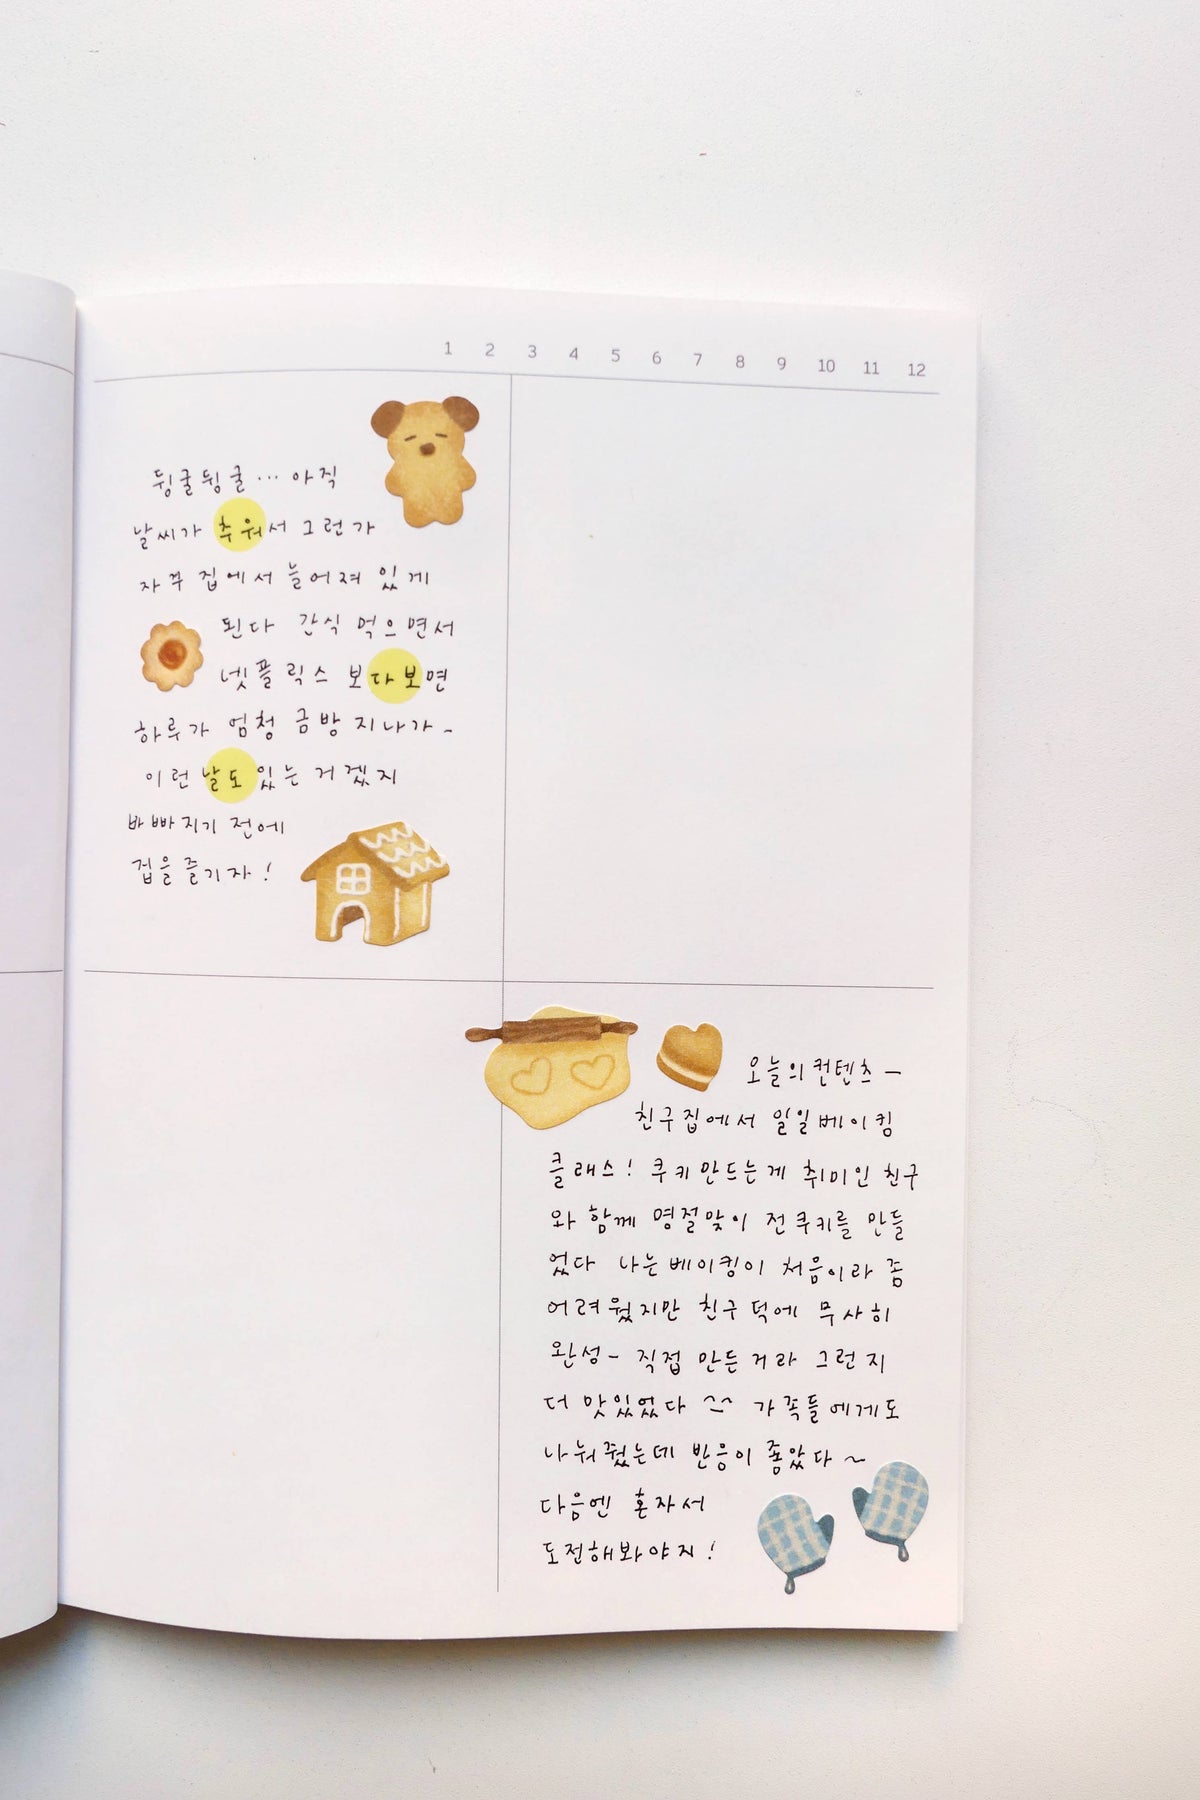 1 2 3 4 5 6 7 8 9 10 11 12
뒹굴뒹굴··· 아직
날씨가 추워서 그런가
자꾸 집에서 늘어져 있게
된다 간식 먹으면서
넷플릭스 보다보면
하루가 엄청 금방 지나가-
이런 날도 있는 거겠지
바빠지기 전에
겁을 즐기자!
오늘의 컨텐츠-
친구집에서 일일베이킹
클래스! 쿠키 만드는게 취미인 친구
와 함께 명절맞이 전쿠키를 만들
었다 나는 베이킹이 처음이라 좀
어려웠지만 친구 덕에 무사히
완성- 직접 만든 거라 그런지
더 맛있었다 ^^ 가족들에게도
나눠줬는데 반응이 좋았다~
다음엔 혼자서
도전해봐야지!